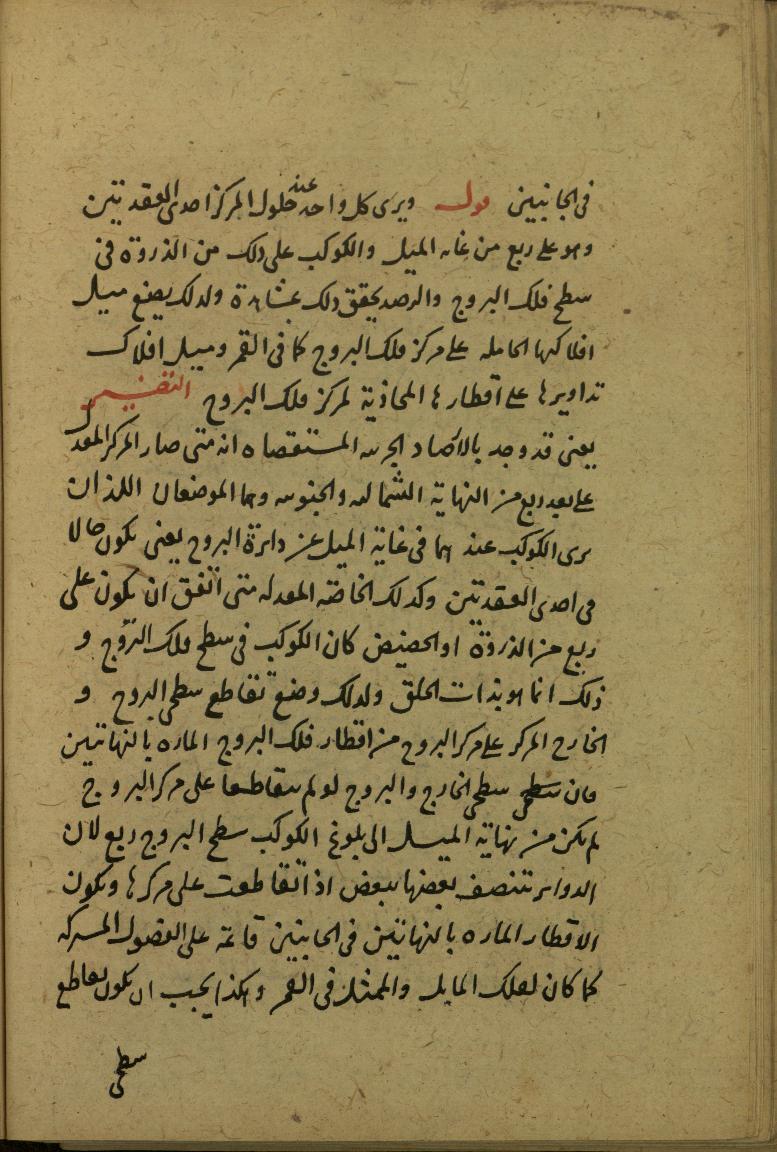 فى الجانبين قوله ويرى كل واحد عند حلول المركز احدى العقدتين
وهو على ربع من غاية الميل والكوكب على ذلك من الذروة فى
سطح فلك البروج والرصد يحقق ذلك عشاهدة ولذلك يصنع ميل
افلاكها الحاملة على مركز فلك البروج كما فى القمر وميل افلاك
تداويرها على اقطارها المحاذية لمركز فلك البروج التفسير
يعنى قد وجد بالارصاد الجزيية المستقصاه انه متى صار المركز المعدل
على بعد ربع من النهاية الشمالية والجنوبية وهما الموضعان اللذان
يرى الكوكب عندهما فى غاية الميل عن دايرة البروج يعنى يكون حالا
فى احدى العقدتين وكذلك الخاصة المعدلة متى اتفق ان يكون على
ربع من الذروة او الحضيض كان الكوكب فى سطح فلك البروج و
ذلك انما هو بذات الحلق ولذلك وضع تقاطع سطحى البروج و
الخارج المركز على مركز البروج من اقطار فلك البروج المارة بالنهايتين
فان سطحى سطحى الخارج والبروج لو لم يتقاطعا على مركز البروج
لم يكن من نهاية الميل الى بلوغ الكوكب سطح البروج ربع لان
الدواير تتنصف بعضها ببعض اذا تقاطعت على مركزها وتكون
الاقطار المارة بالنهايتين فى الجانبين قائمة على الفضول المشتركة
كما كان لفلك المايل والممثل فى القمر وهكذا يجب ان يكون تقاطع
سطحى